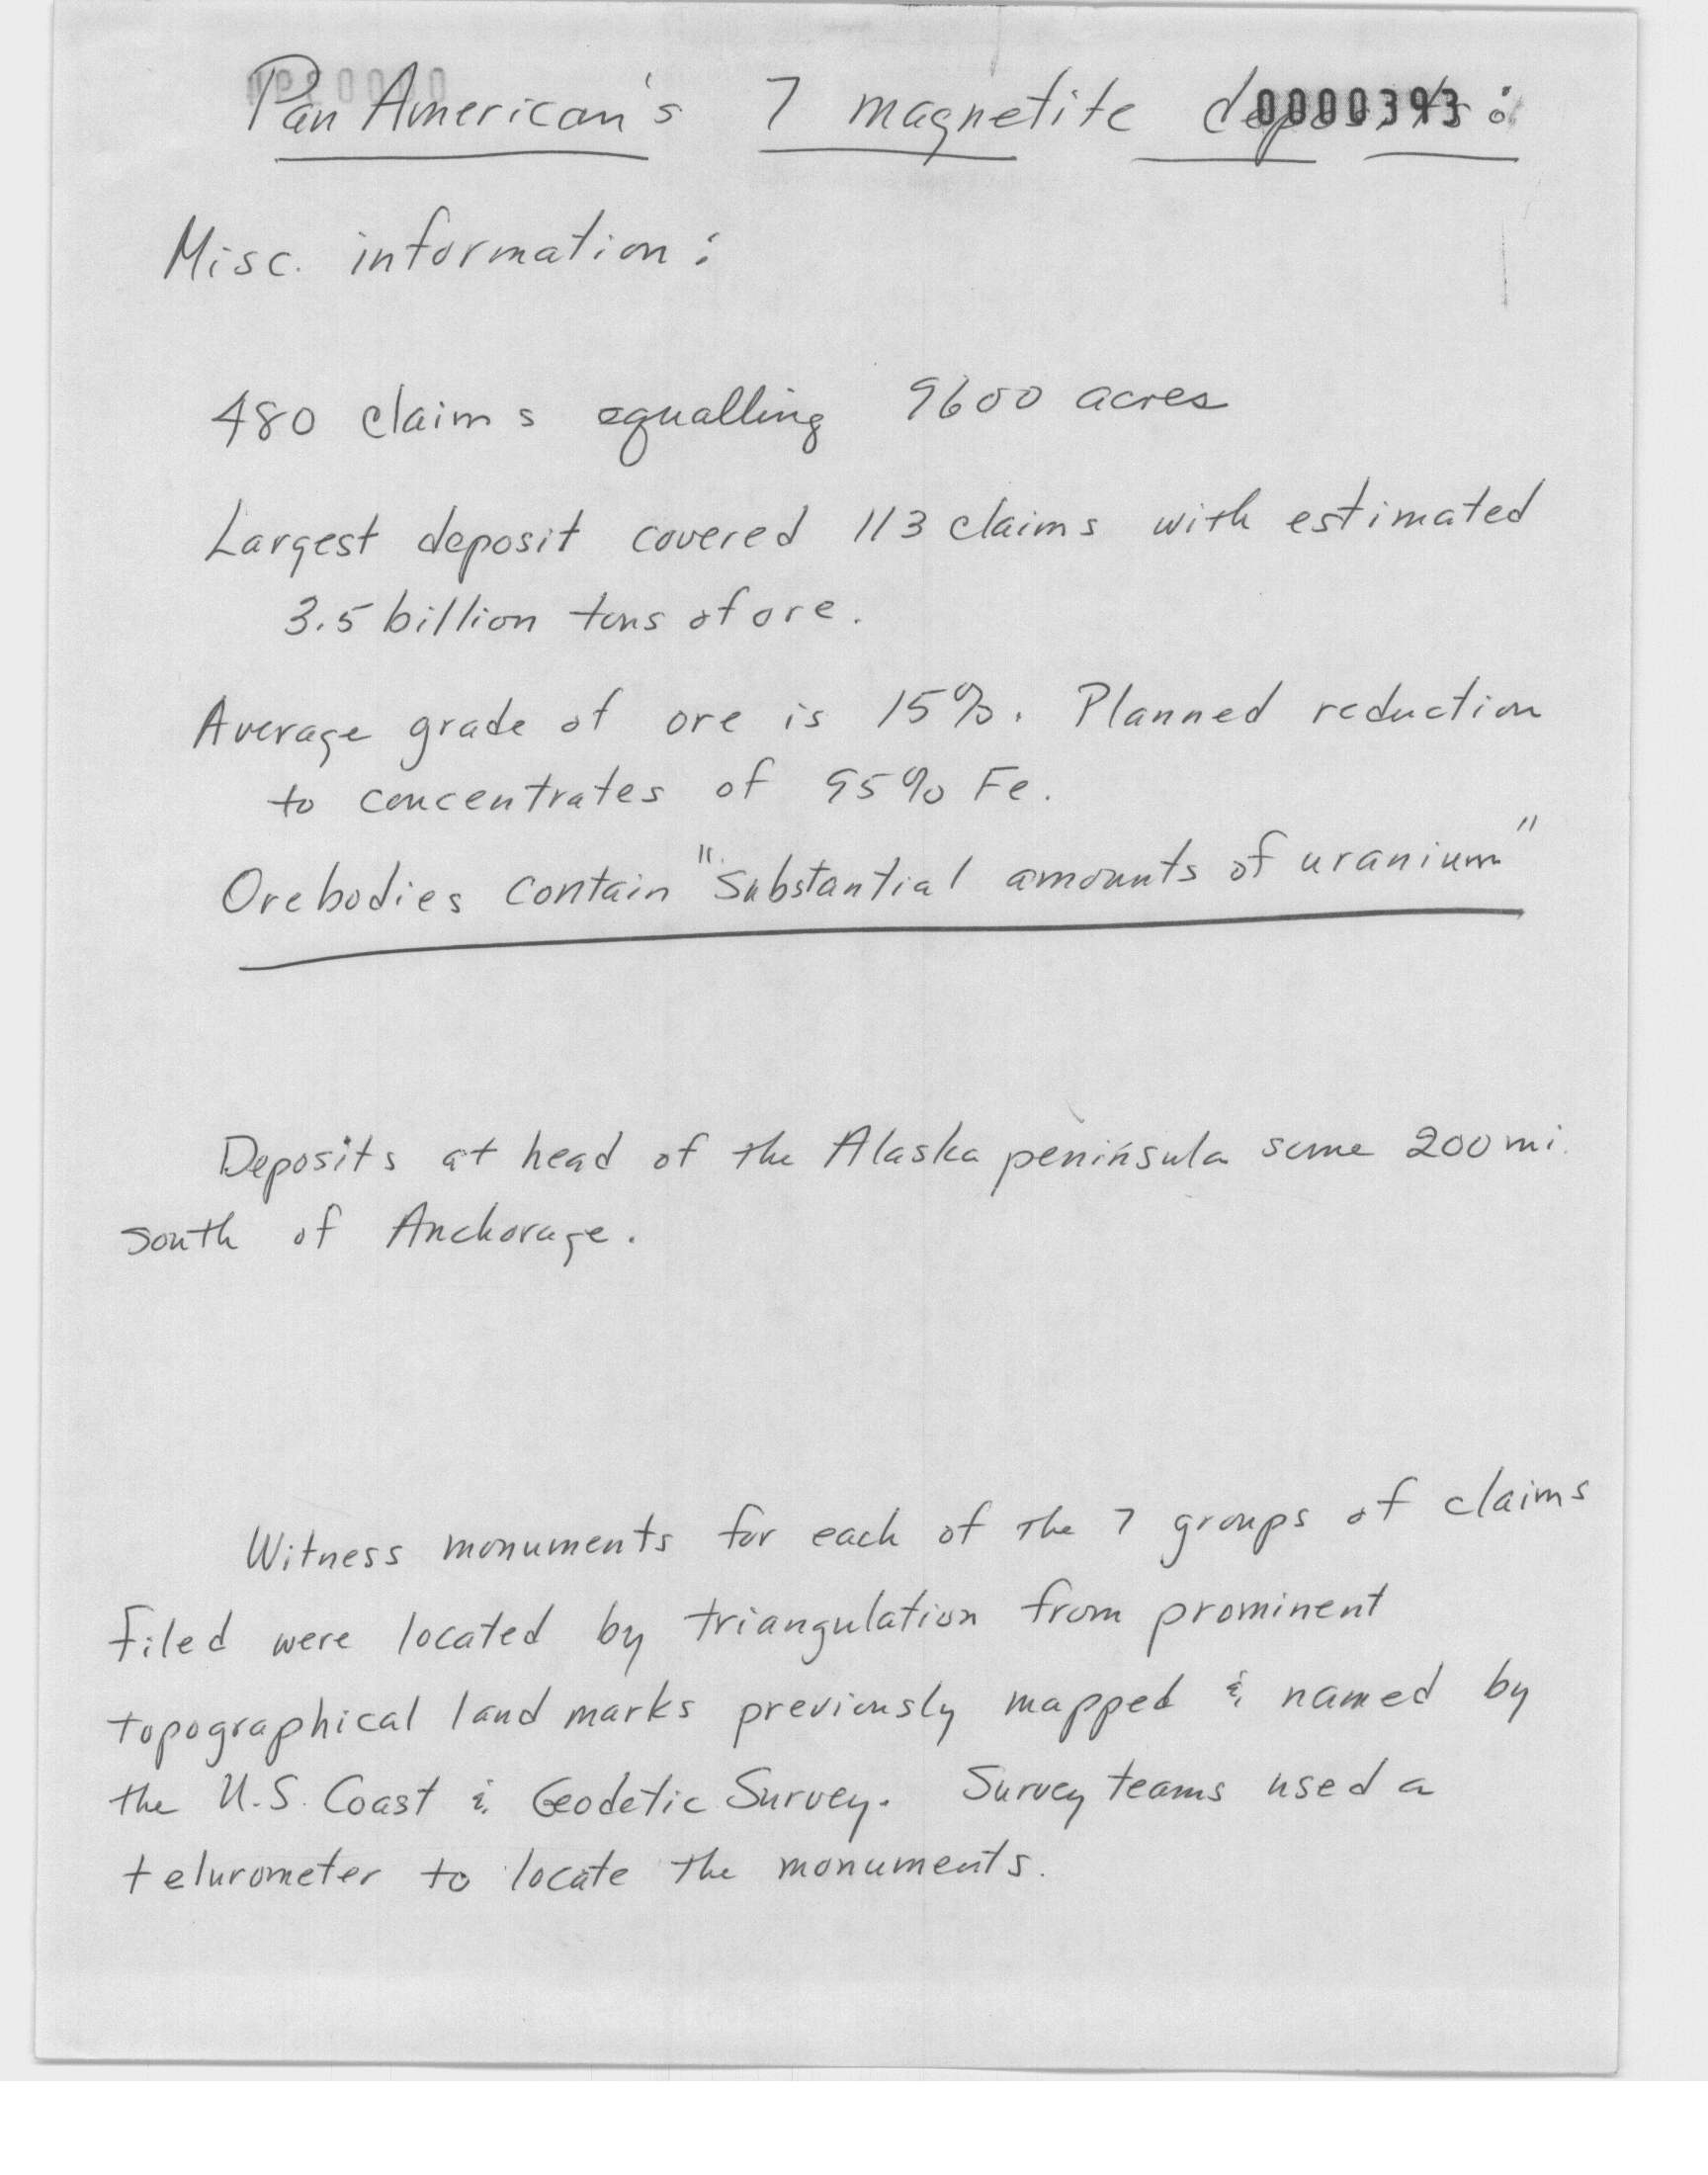 Pan American's 7 magnetite deposits:
0000393
Misc. information:
480 claims equalling 9600 acres
Largest deposit covered 113 claims with estimated
3.5 billion tons of ore.
Average grade of ore is 15%. Planned reduction
to concentrates of 95% Fe.
Orebodies contain "substantial amounts of uranium"
Deposits at head of the Alaska peninsula some 200 mi.
south of Anchorage.
Witness monuments for each of the 7 groups of claims
filed were located by triangulation from prominent
topographical land marks previously mapped & named by
the U.S. Coast & Geodetic Survey. Survey teams used a
telurometer to locate the monuments.